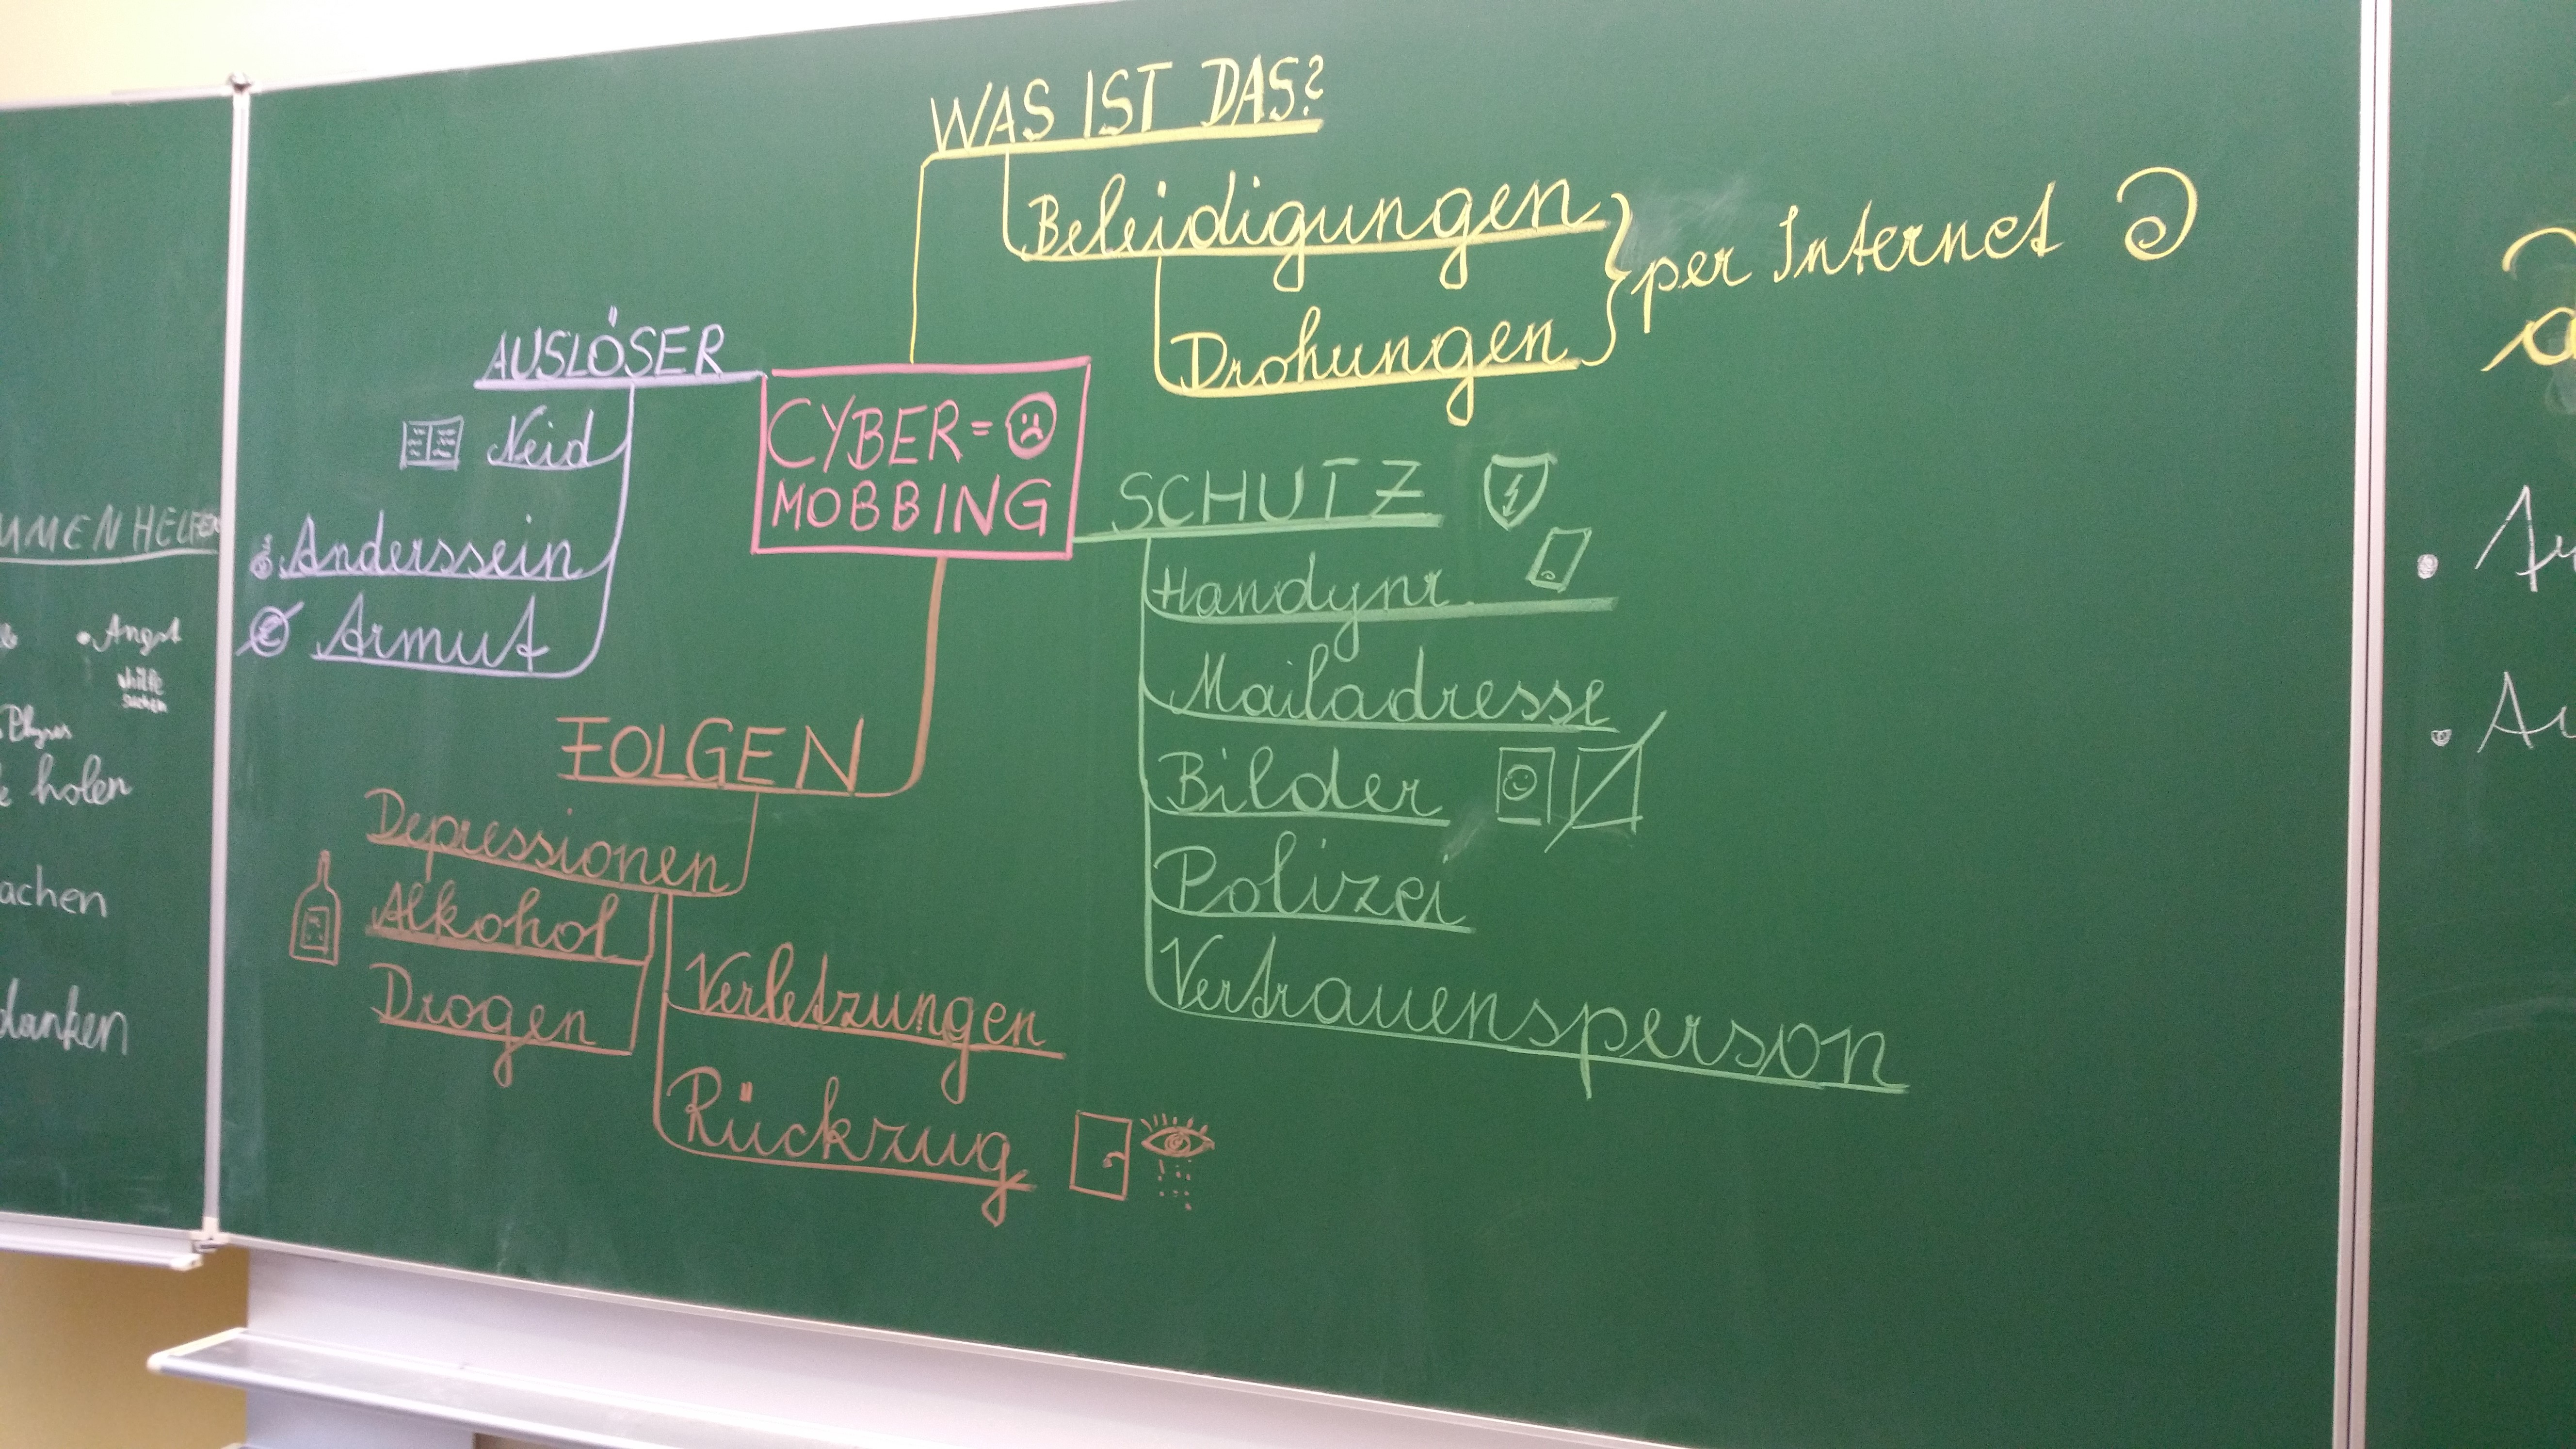 WAS IST DAS?
Beleidigungen
Drohungen
per Internet
AUSLÖSER
Neid
Anderssein
Armut
CYBER=
MOBBING
SCHUTZ
Handynr.
Mailadresse
Bilder
Polizei
Vertrauensperson
FOLGEN
Depressionen
Alkohol
Drogen
Verletzungen
Rückzug
HELFEN
• Angst
hilfe
suchen
holen
achen
danken